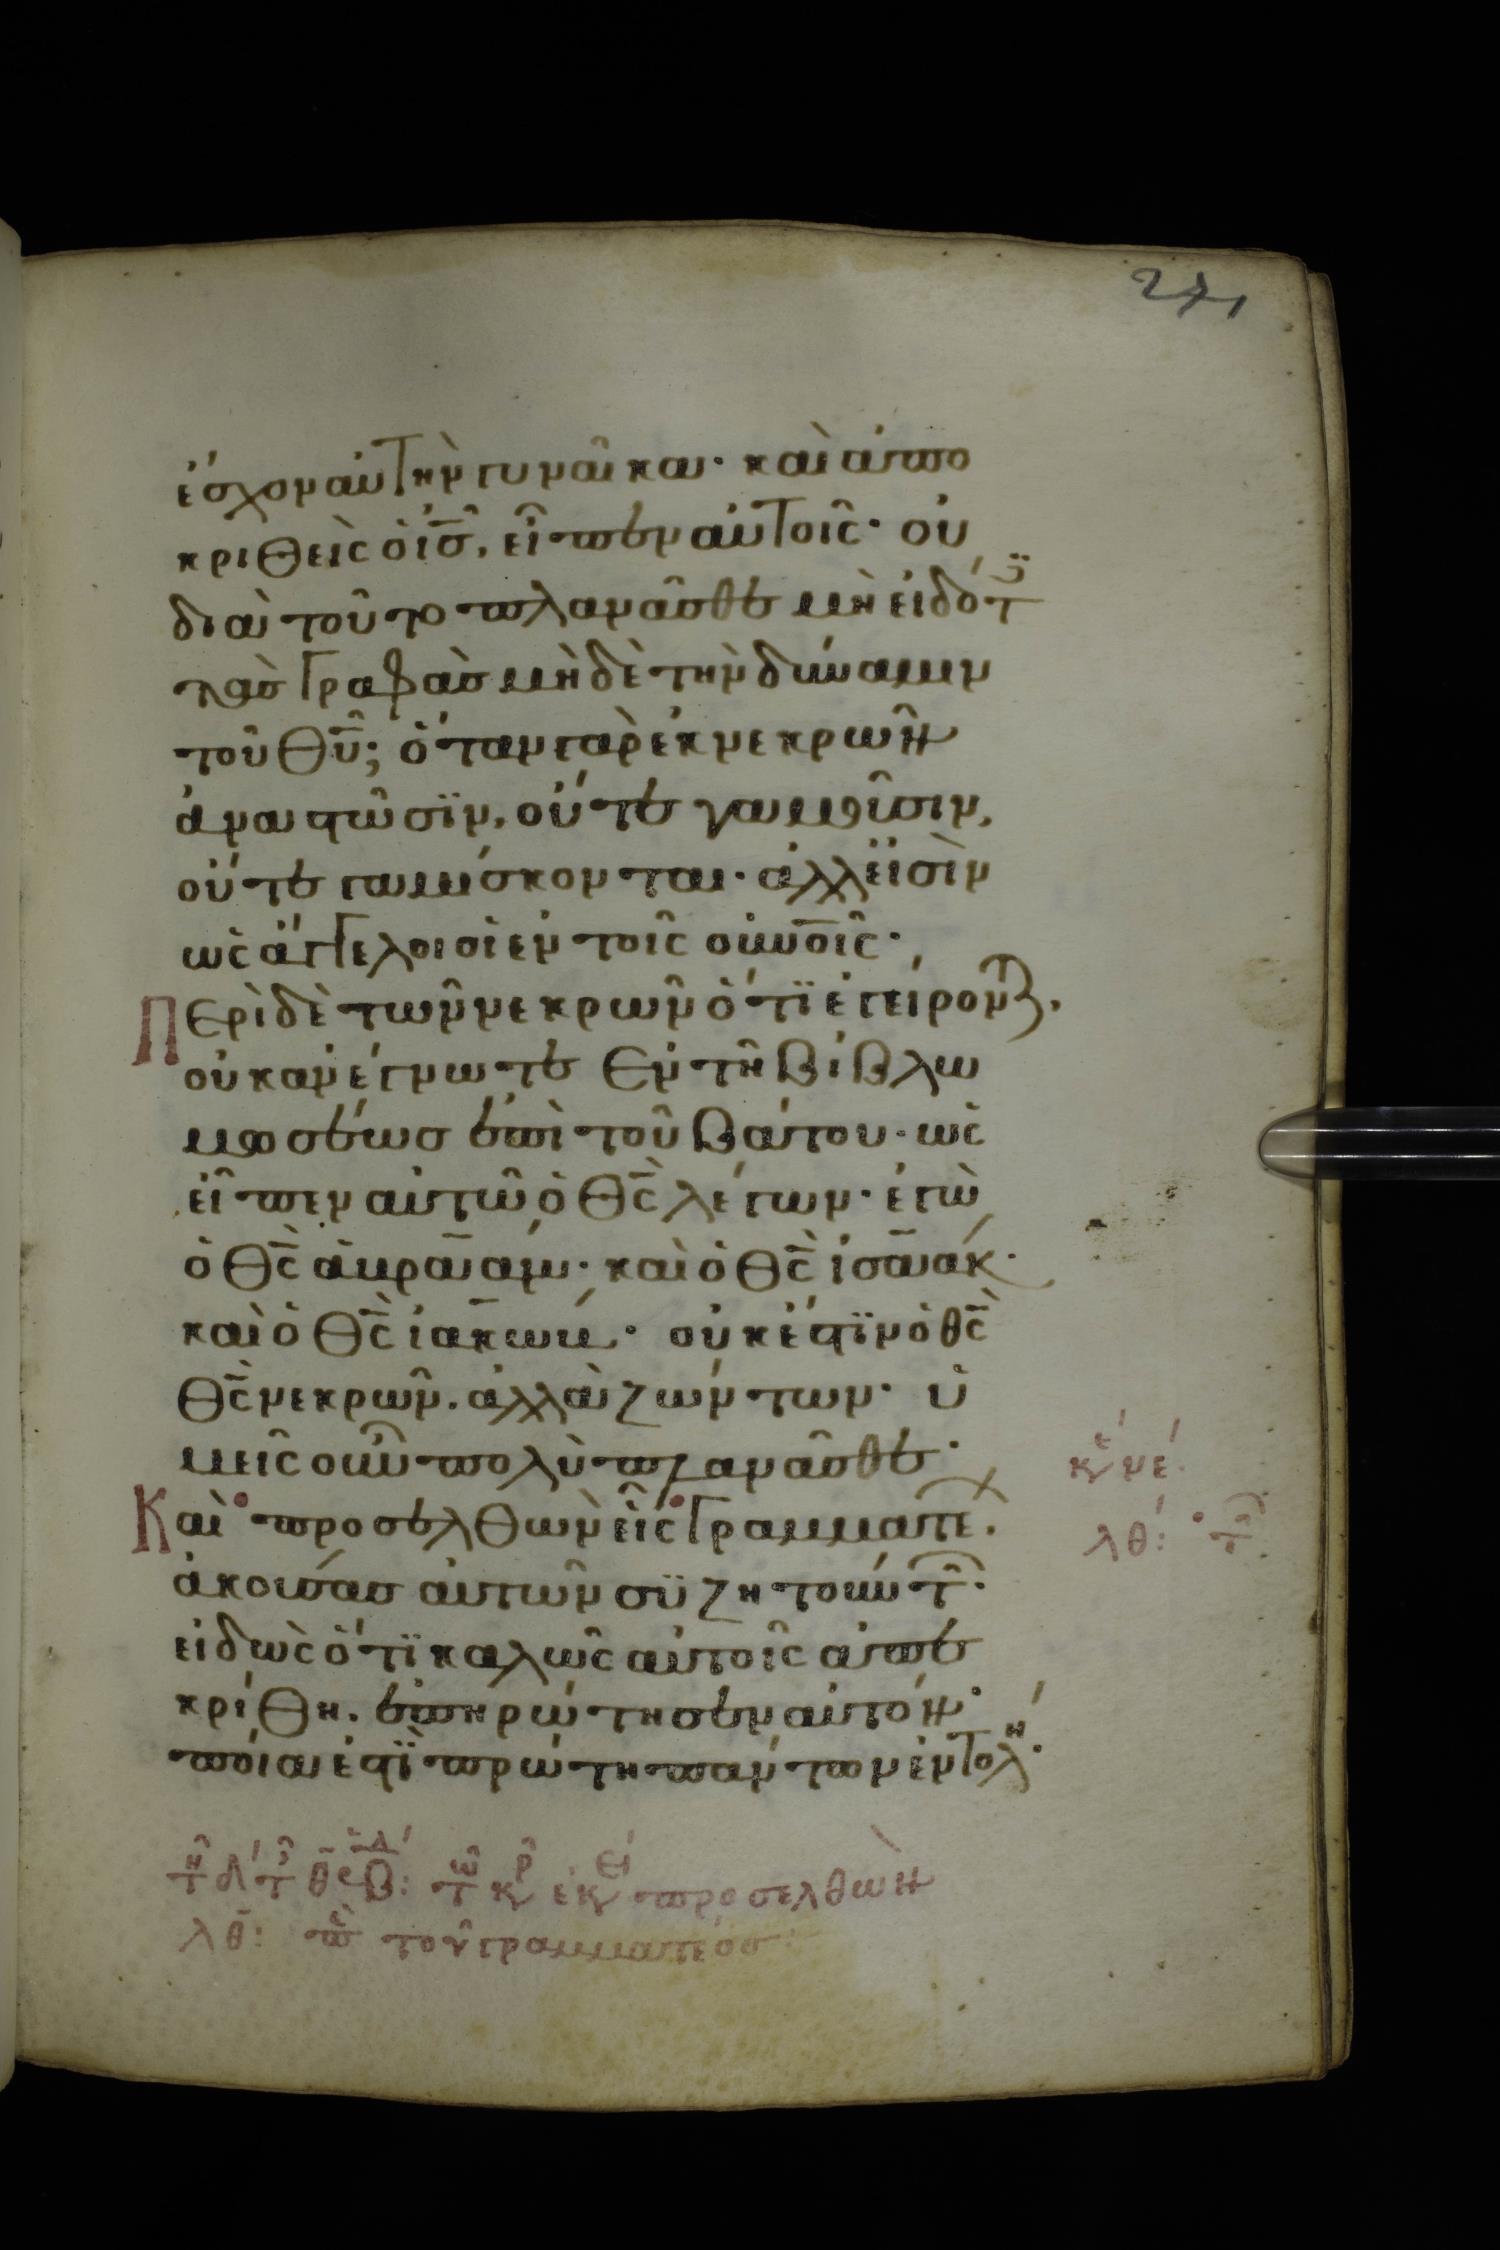 271
ἔσχον αὐτὴν γυναῖκα· καὶ ἀπο
κριθεὶς ὁ ις̅, εἶπεν αὐτοῖς· οὐ
διὰ τοῦτο πλανᾶσθε μὴ εἰδότ
τὰς γραφὰς μὴδὲ τὴν δύναμιν
τοῦ θυ̅; ὅταν γὰρ ἐκ νεκρῶν
ἀναστῶσϊν, οὔτε γαμοῦσιν,
οὔτε γαμίσκονται· ἀλλ εἰσὶν
ὡς ἄγγελοι οἱ ἐν τοῖς ουνοις·
Περὶ δὲ τῶν νεκρῶν ὅτϊ ἐγείροντ,
οὐκ ἀνέγνωτε ἐν τῆ βίβλω
μωσέως ἐπὶ τοῦ βάτου· ὡς
εἶπεν αὐτῶ ὁ θς̅ λέγων· ἐγὼ
ὁ θς̅ ἀβραάμ· καὶ ὁ θς̅ ἰσαάκ·
καὶ ὁ θς̅ ἰακώβ· οὐκ ἔστϊν ὁ θς̅
θς̅ νεκρῶν. ἀλλὰ ζώντων· ὑ
μεῖς οὖν πολὺ πλανᾶσθε·
Καὶ προσελθὼν εἷς γραμματε.
ἀκούσας αὐτῶν συζητούντ·
εἰδὼς ὅτϊ καλῶς αὐτοῖς ἀπε
κρίθη. ἐπηρώτησεν αὐτόν·
ποία ἐστϊ πρώτη πάντων ἐντολη·
λθ:
τ κ ἐκ προσελθὼν
λθ: π τοῦ γραμματέος